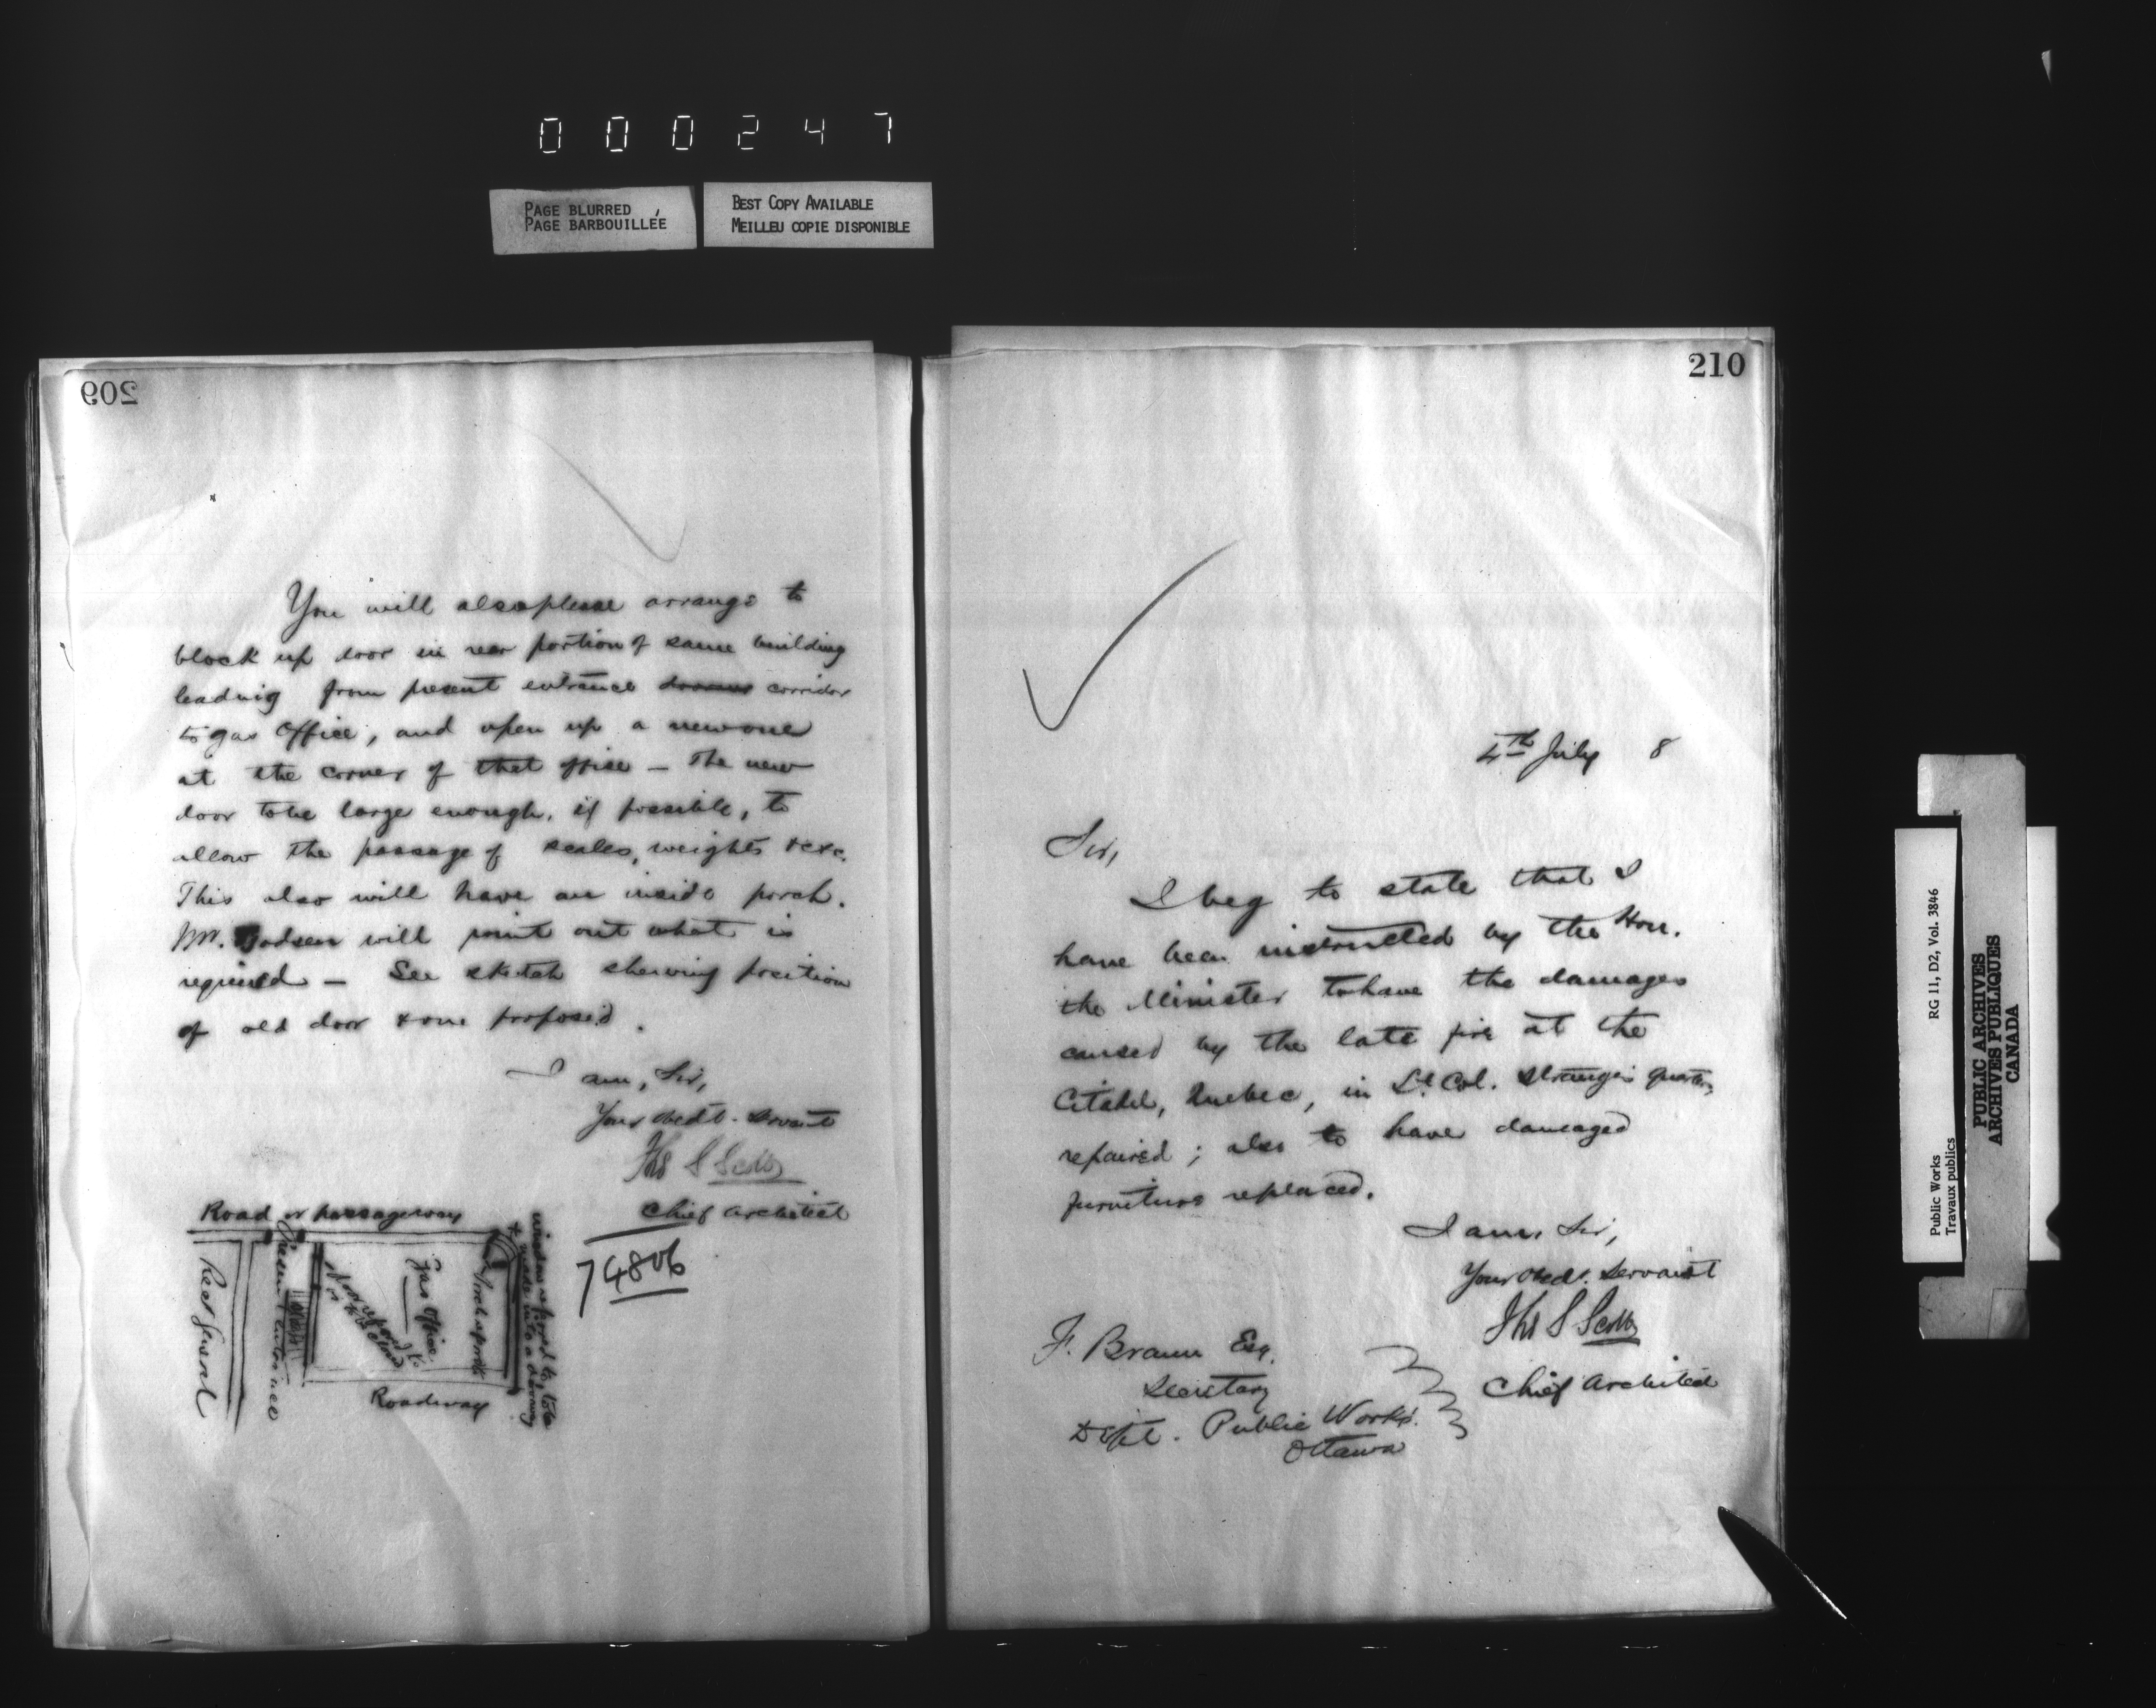 000247
PAGE BLURRED
PAGE BARBOUILLÉE
BEST COPY AVAILABLE
MEILLEU COPIE DISPONIBLE
209
You will also please arrange to
block up door in rear portion of same building
leading from present entrance corridor
to gas Office, and open up a new one
at the corner of that office — The new
door to be large enough, if possible, to
allow the passage of scales, weights &c &c.
This also will have an inside porch.
Mr. will point out what is
required — See sketch shewing position
of old door & one proposed.
I am, Sir,
Your Obedt. Servant
Ths S Scott
Chief Architect
74806
Road or passageway
Present Entrance
door
to be closed
Gas Office
Porch
window
to be
made into a doorway
Roadway
210
4th July 8
Sir,
I beg to state that I
have been instructed by the Hon.
the Minister to have the damages
caused by the late fire at the
Citadel, Quebec, in Lt. Col. Strange's quarters,
repaired; also to have damaged
furniture replaced.
I am, Sir,
Your Obedt. Servant
Ths S Scott
Chief Architect
F. Braun Esq.
Secretary
Dept. Public Works.
Ottawa
Public Works
Travaux publics
RG 11, D2, Vol. 3846
PUBLIC ARCHIVES
ARCHIVES PUBLIQUES
CANADA